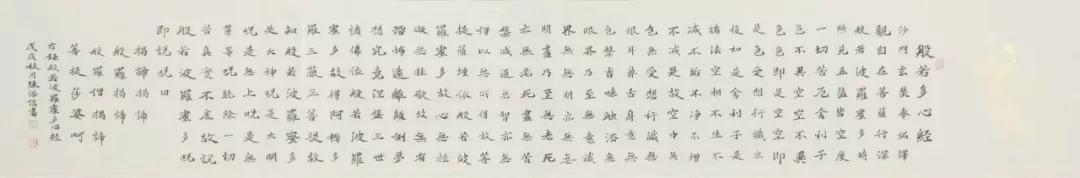 般若多心經
沙門玄奘奉詔譯
觀自在菩薩行深
般若波羅蜜多時
照見五蘊皆空度
一切苦厄舍利子
色不異空空不異
色色即是空空即
是色受想行識亦
復如是舍利子是
諸法空相不生不
滅不垢不淨不增
不減是故空中無
色無受想行識無
眼耳鼻舌身意無
色聲香味觸法無
眼界乃至無意識
界無無明亦無無
明盡乃至無老死
亦無老死盡無苦
集滅道無智亦無
得以無所得故菩
提薩埵依般若波
羅蜜多故心無罣
礙無罣礙故無有
恐怖遠離顛倒夢
想究竟涅槃三世
諸佛依般若波羅
蜜多故得阿耨多
羅三藐三菩提故
知般若波羅蜜多
是大神呪是大明
呪是無上呪是無
等等呪能除一切
苦真實不虛故說
般若波羅蜜多呪
即說呪曰
揭諦揭諦
般羅揭諦
般羅僧揭諦
菩提莎婆呵
右錄般若波羅蜜多心經
戊戌秋月陳浩信書